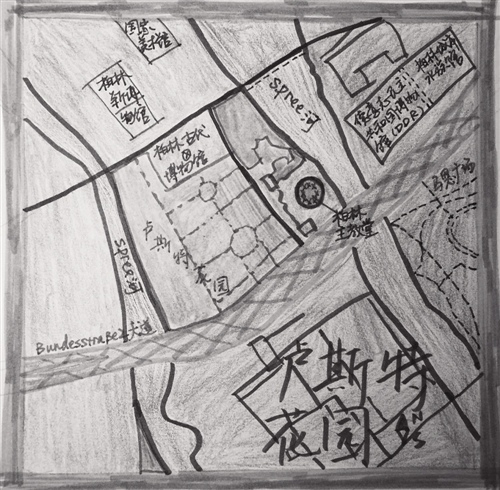 国家
美术馆
柏林
新博
物馆
柏林古代
博物馆
Spree河
德意志民主
共和国博物
馆(DDR)
柏林城市
水族馆
马恩广场
柏林
主教堂
卢斯特
花园
Spree河
Bundesstraße2大道
卢斯特
花园